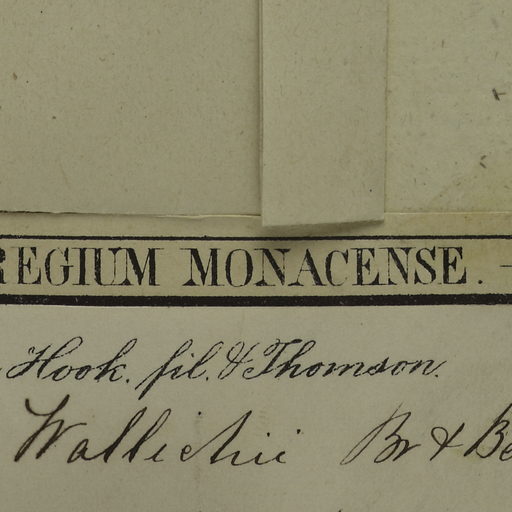 REGIUM MONACENSE. —
Hook. fil. & Thomson.
Wallichii Br & Be